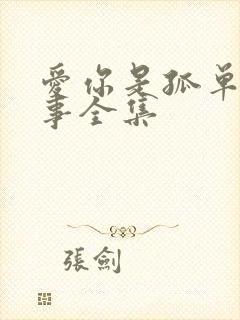 愛你是孤單
事全集
張劍